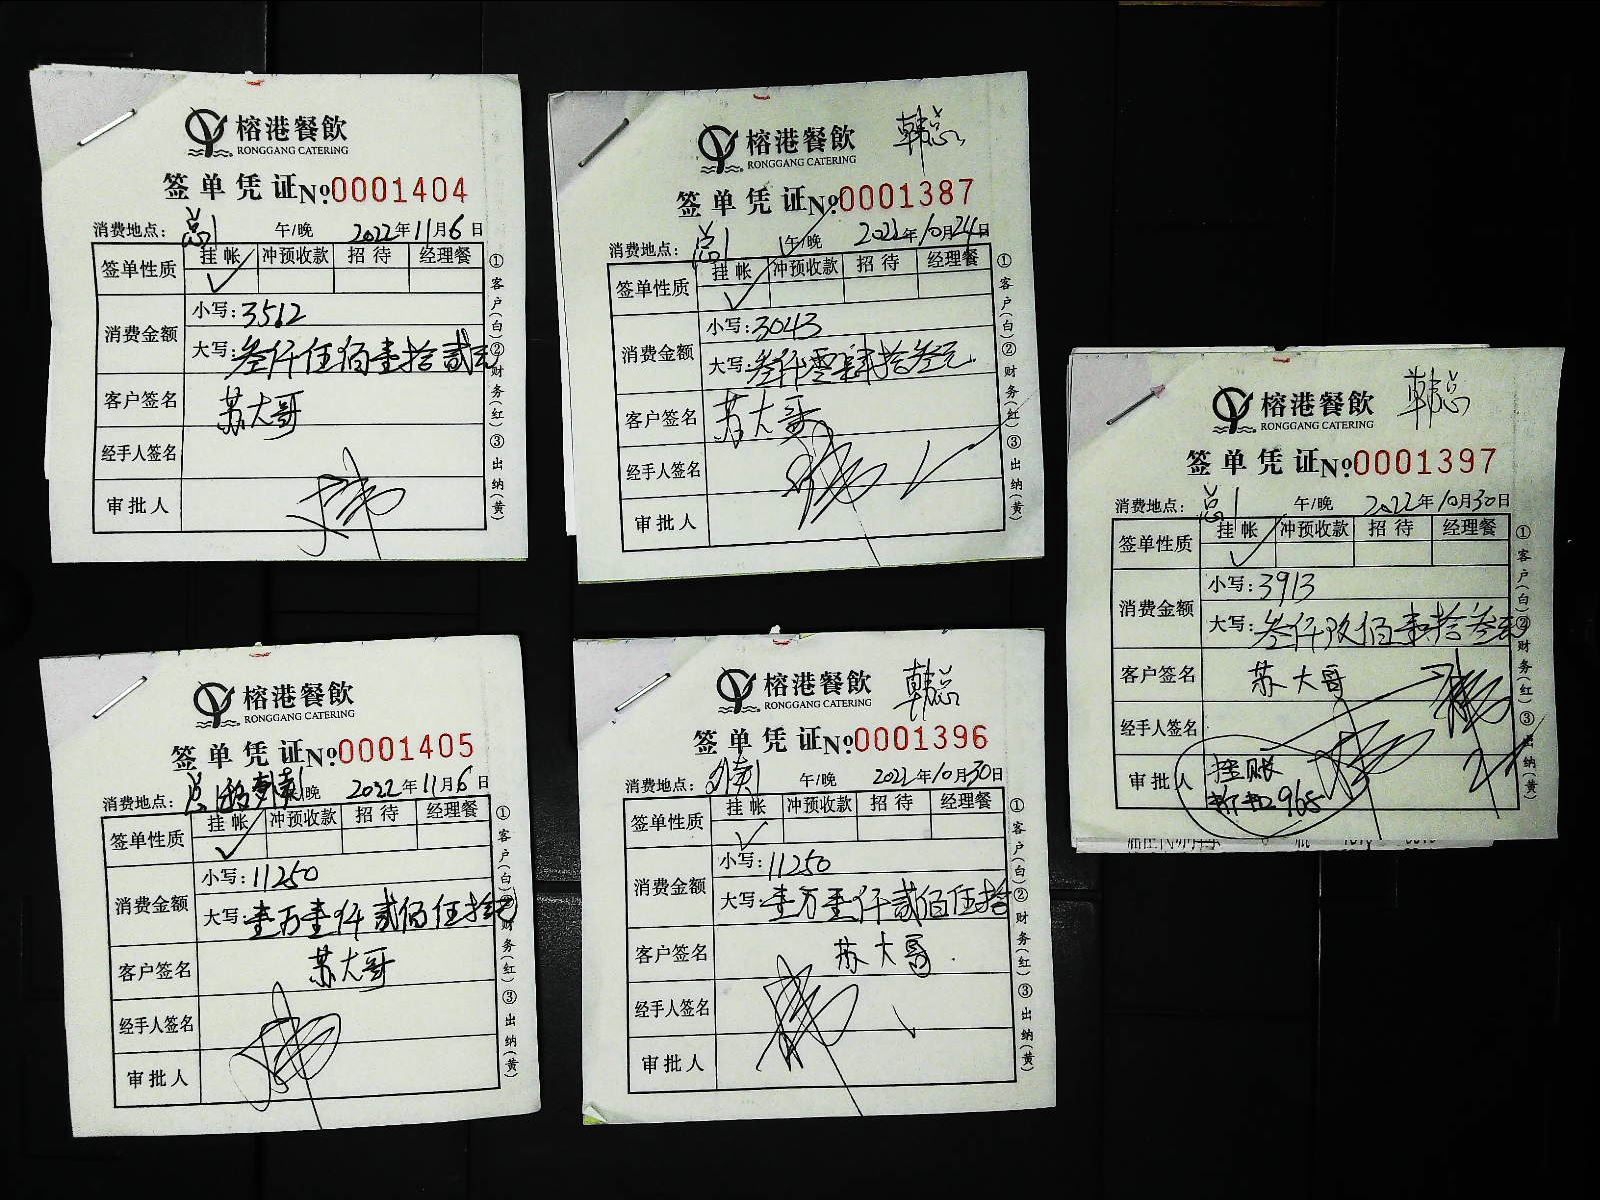 榕港餐飲
RONGGANG CATERING
签单凭证 №0001404
消费地点: 总1 午/晚 2022年11月6日
签单性质 挂帐 冲预收款 招待 经理餐
✓
消费金额 小写:3512
大写:叁仟伍佰壹拾贰元
客户签名 苏大哥
经手人签名
审批人
①客户(白)②财务(红)③出纳(黄)
榕港餐飲 韩总
RONGGANG CATERING
签单凭证 №0001387
消费地点: 总1 午/晚 2022年10月24日
签单性质 挂帐 冲预收款 招待 经理餐
✓
消费金额 小写:3043
大写:叁仟零肆拾叁元
客户签名 苏大哥
经手人签名
审批人
①客户(白)②财务(红)③出纳(黄)
榕港餐飲 韩总
RONGGANG CATERING
签单凭证 №0001397
消费地点: 总1 午/晚 2022年10月30日
签单性质 挂帐 冲预收款 招待 经理餐
✓
消费金额 小写:3913
大写:叁仟玖佰壹拾叁元
客户签名 苏大哥
经手人签名
审批人 挂账
965
①客户(白)②财务(红)③出纳(黄)
榕港餐飲
RONGGANG CATERING
签单凭证 №0001405
消费地点: 总1 晚 2022年11月6日
签单性质 挂帐 冲预收款 招待 经理餐
✓
消费金额 小写:11250
大写:壹万壹仟贰佰伍拾元
客户签名 苏大哥
经手人签名
审批人
①客户(白)②财务(红)③出纳(黄)
榕港餐飲 韩总
RONGGANG CATERING
签单凭证 №0001396
消费地点: 外卖1 午/晚 2022年10月30日
签单性质 挂帐 冲预收款 招待 经理餐
✓
消费金额 小写:11250
大写:壹万壹仟贰佰伍拾
客户签名 苏大哥
经手人签名
审批人
①客户(白)②财务(红)③出纳(黄)